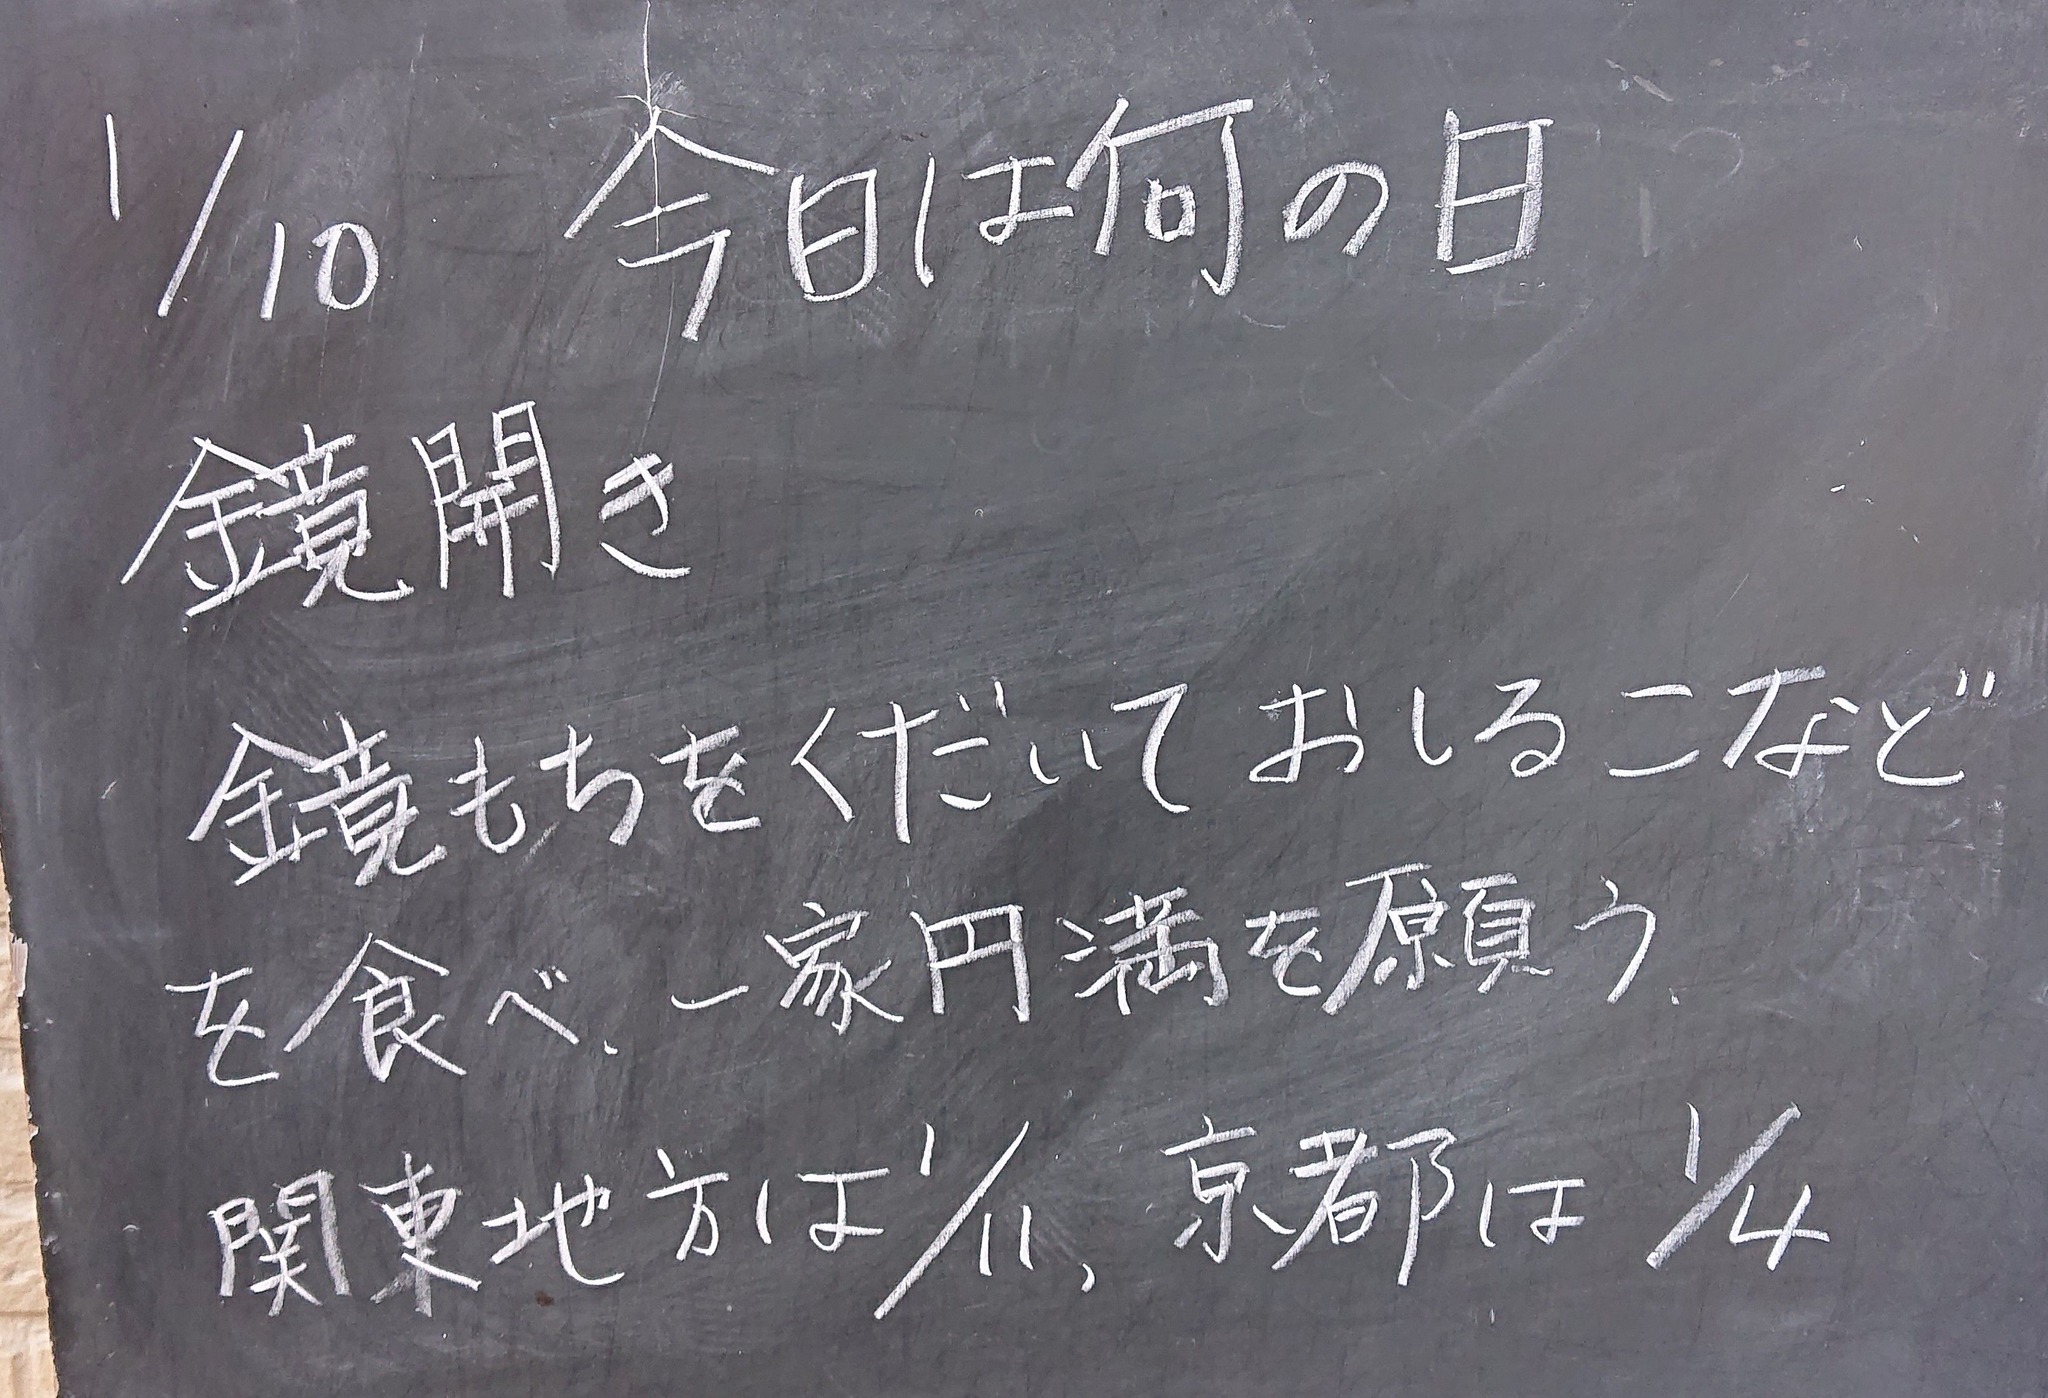 1/10 今日は何の日
鏡開き
鏡もちをくだいておしるこなど
を食べ、一家円満を願う。
関東地方は1/11、京都は1/4